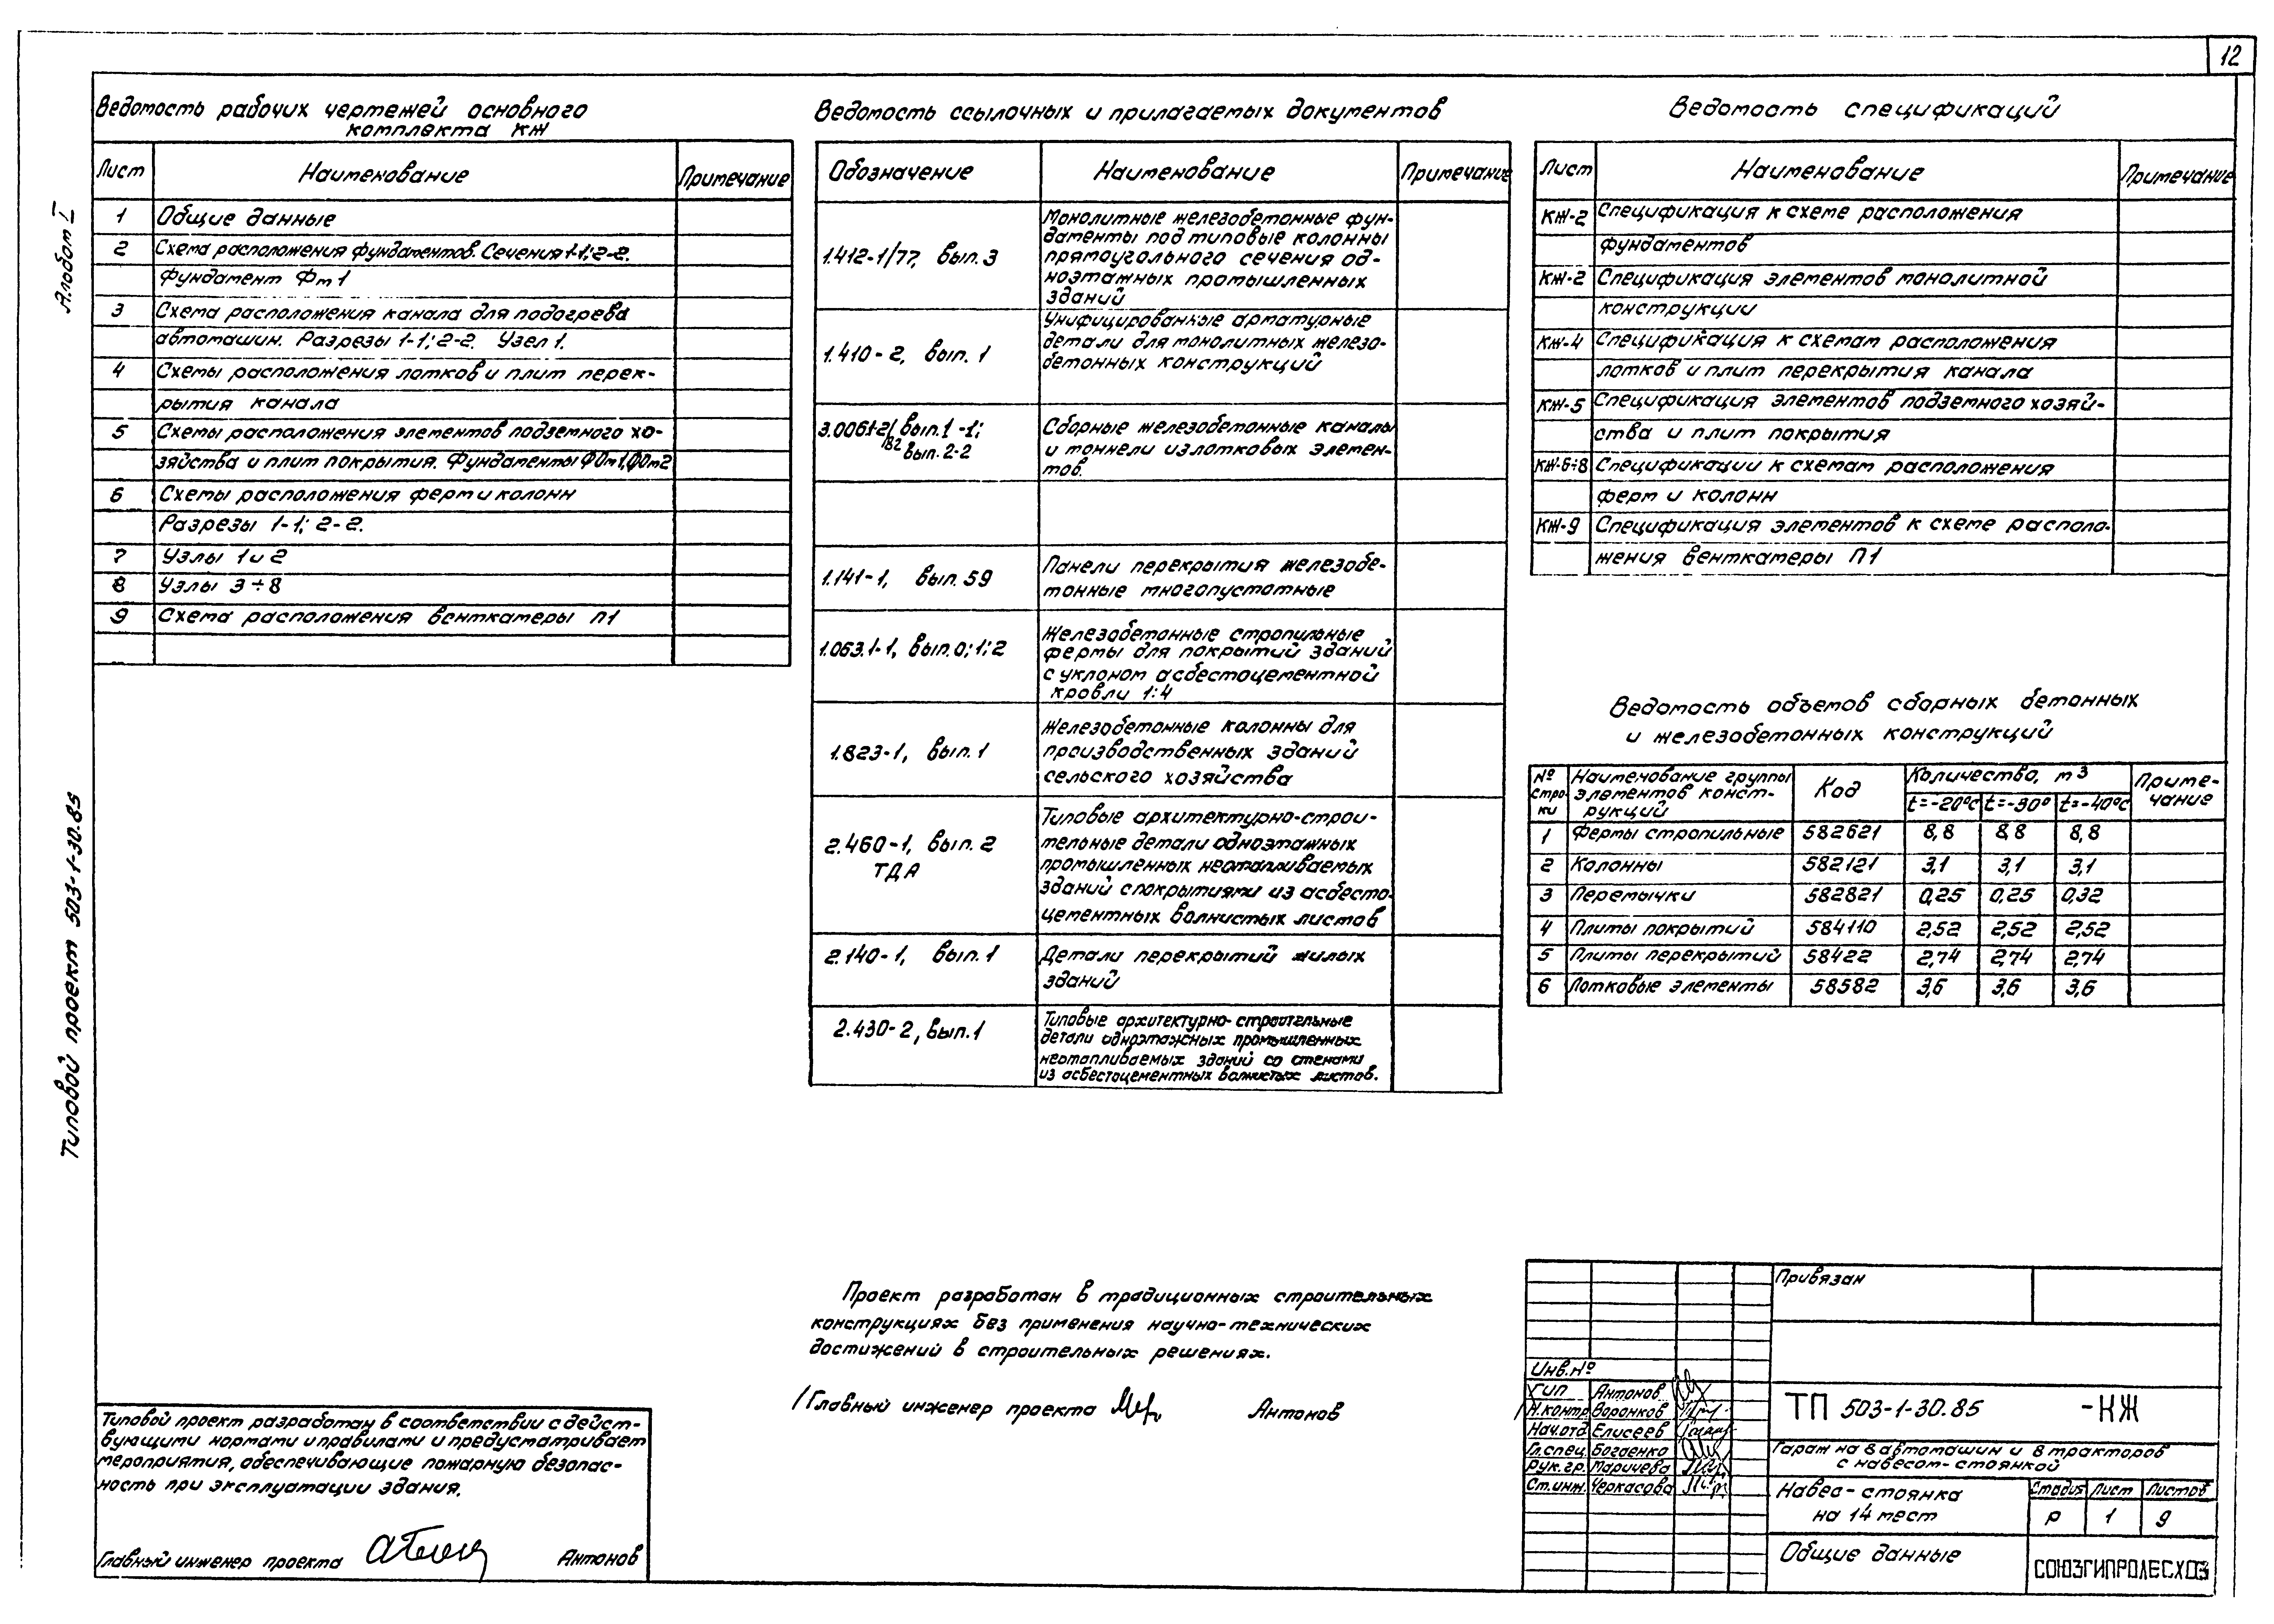 12
Альбом I
Типовой проект 503-1-30.85
Ведомость рабочих чертежей основного
комплекта КЖ
Лист Наименование Примечание
1 Общие данные
2 Схема расположения фундаментов. Сечения 1-1; 2-2.
Фундамент Фм1
3 Схема расположения канала для подогрева
автомашин. Разрезы 1-1; 2-2. Узел 1.
4 Схемы расположения лотков и плит перек-
рытия канала
5 Схемы расположения элементов подземного хо-
зяйства и плит покрытия. Фундаменты ФОм1, ФОм2
6 Схемы расположения ферм и колонн
Разрезы 1-1; 2-2.
7 Узлы 1 и 2
8 Узлы 3÷8
9 Схема расположения венткамеры П1
Ведомость ссылочных и прилагаемых документов
Обозначение Наименование Примечание
1.412-1/77, вып. 3
Монолитные железобетонные фун-
даменты под типовые колонны
прямоугольного сечения од-
ноэтажных промышленных
зданий
1.410-2, вып. 1
Унифицированные арматурные
детали для монолитных железо-
бетонных конструкций
3.006.1-2/82 вып. 1-1;
вып. 2-2
Сборные железобетонные каналы
и тоннели из лотковых элемен-
тов.
1.141-1, вып. 59
Панели перекрытия железобе-
тонные многопустотные
1.063.1-1, вып. 0; 1; 2
Железобетонные стропильные
фермы для покрытий зданий
с уклоном асбестоцементной
кровли 1:4
1.823-1, вып. 1
Железобетонные колонны для
производственных зданий
сельского хозяйства
2.460-1, вып. 2
ТДА
Типовые архитектурно-строи-
тельные детали одноэтажных
промышленных неотапливаемых
зданий с покрытиями из асбесто-
цементных волнистых листов
2.140-1, вып. 1
Детали перекрытий жилых
зданий
2.430-2, вып. 1
Типовые архитектурно-строительные
детали одноэтажных промышленных
неотапливаемых зданий со стенами
из асбестоцементных волнистых листов.
Ведомость спецификаций
Лист Наименование Примечание
КЖ-2 Спецификация к схеме расположения
фундаментов
КЖ-2 Спецификация элементов монолитной
конструкции
КЖ-4 Спецификация к схемам расположения
лотков и плит перекрытия канала
КЖ-5 Спецификация элементов подземного хозяй-
ства и плит покрытия
КЖ-6÷8 Спецификации к схемам расположения
ферм и колонн
КЖ-9 Спецификация элементов к схеме располо-
жения венткамеры П1
Ведомость объемов сборных бетонных
и железобетонных конструкций
№ стро-ки Наименование группы элементов конст-рукций Код Количество, м³ Приме-чание
t=-20°С t=-30° t=-40°С
1 Фермы стропильные 582621 8,8 8,8 8,8
2 Колонны 582121 3,1 3,1 3,1
3 Перемычки 582821 0,25 0,25 0,32
4 Плиты покрытий 584110 2,52 2,52 2,52
5 Плиты перекрытий 58422 2,74 2,74 2,74
6 Лотковые элементы 58582 3,6 3,6 3,6
Проект разработан в традиционных строительных
конструкциях без применения научно-технических
достижений в строительных решениях.
Главный инженер проекта Антонов
Типовой проект разработан в соответствии с дейст-
вующими нормами и правилами и предусматривает
мероприятия, обеспечивающие пожарную безопас-
ность при эксплуатации здания.
Главный инженер проекта Антонов
Привязан
Инв.№
Гип Антонов
Н.контр Воронков
Нач.отд Елисеев
Гл.спец. Богаенко
Рук.гр. Маричева
Ст.инж. Черкасова
ТП 503-1-30.85 -КЖ
Гараж на 8 автомашин и 8 тракторов
с навесом-стоянкой
Навес-стоянка
на 14 мест
Стадия Лист Листов
Р 1 9
Общие данные
СОЮЗГИПРОЛЕСХОЗ